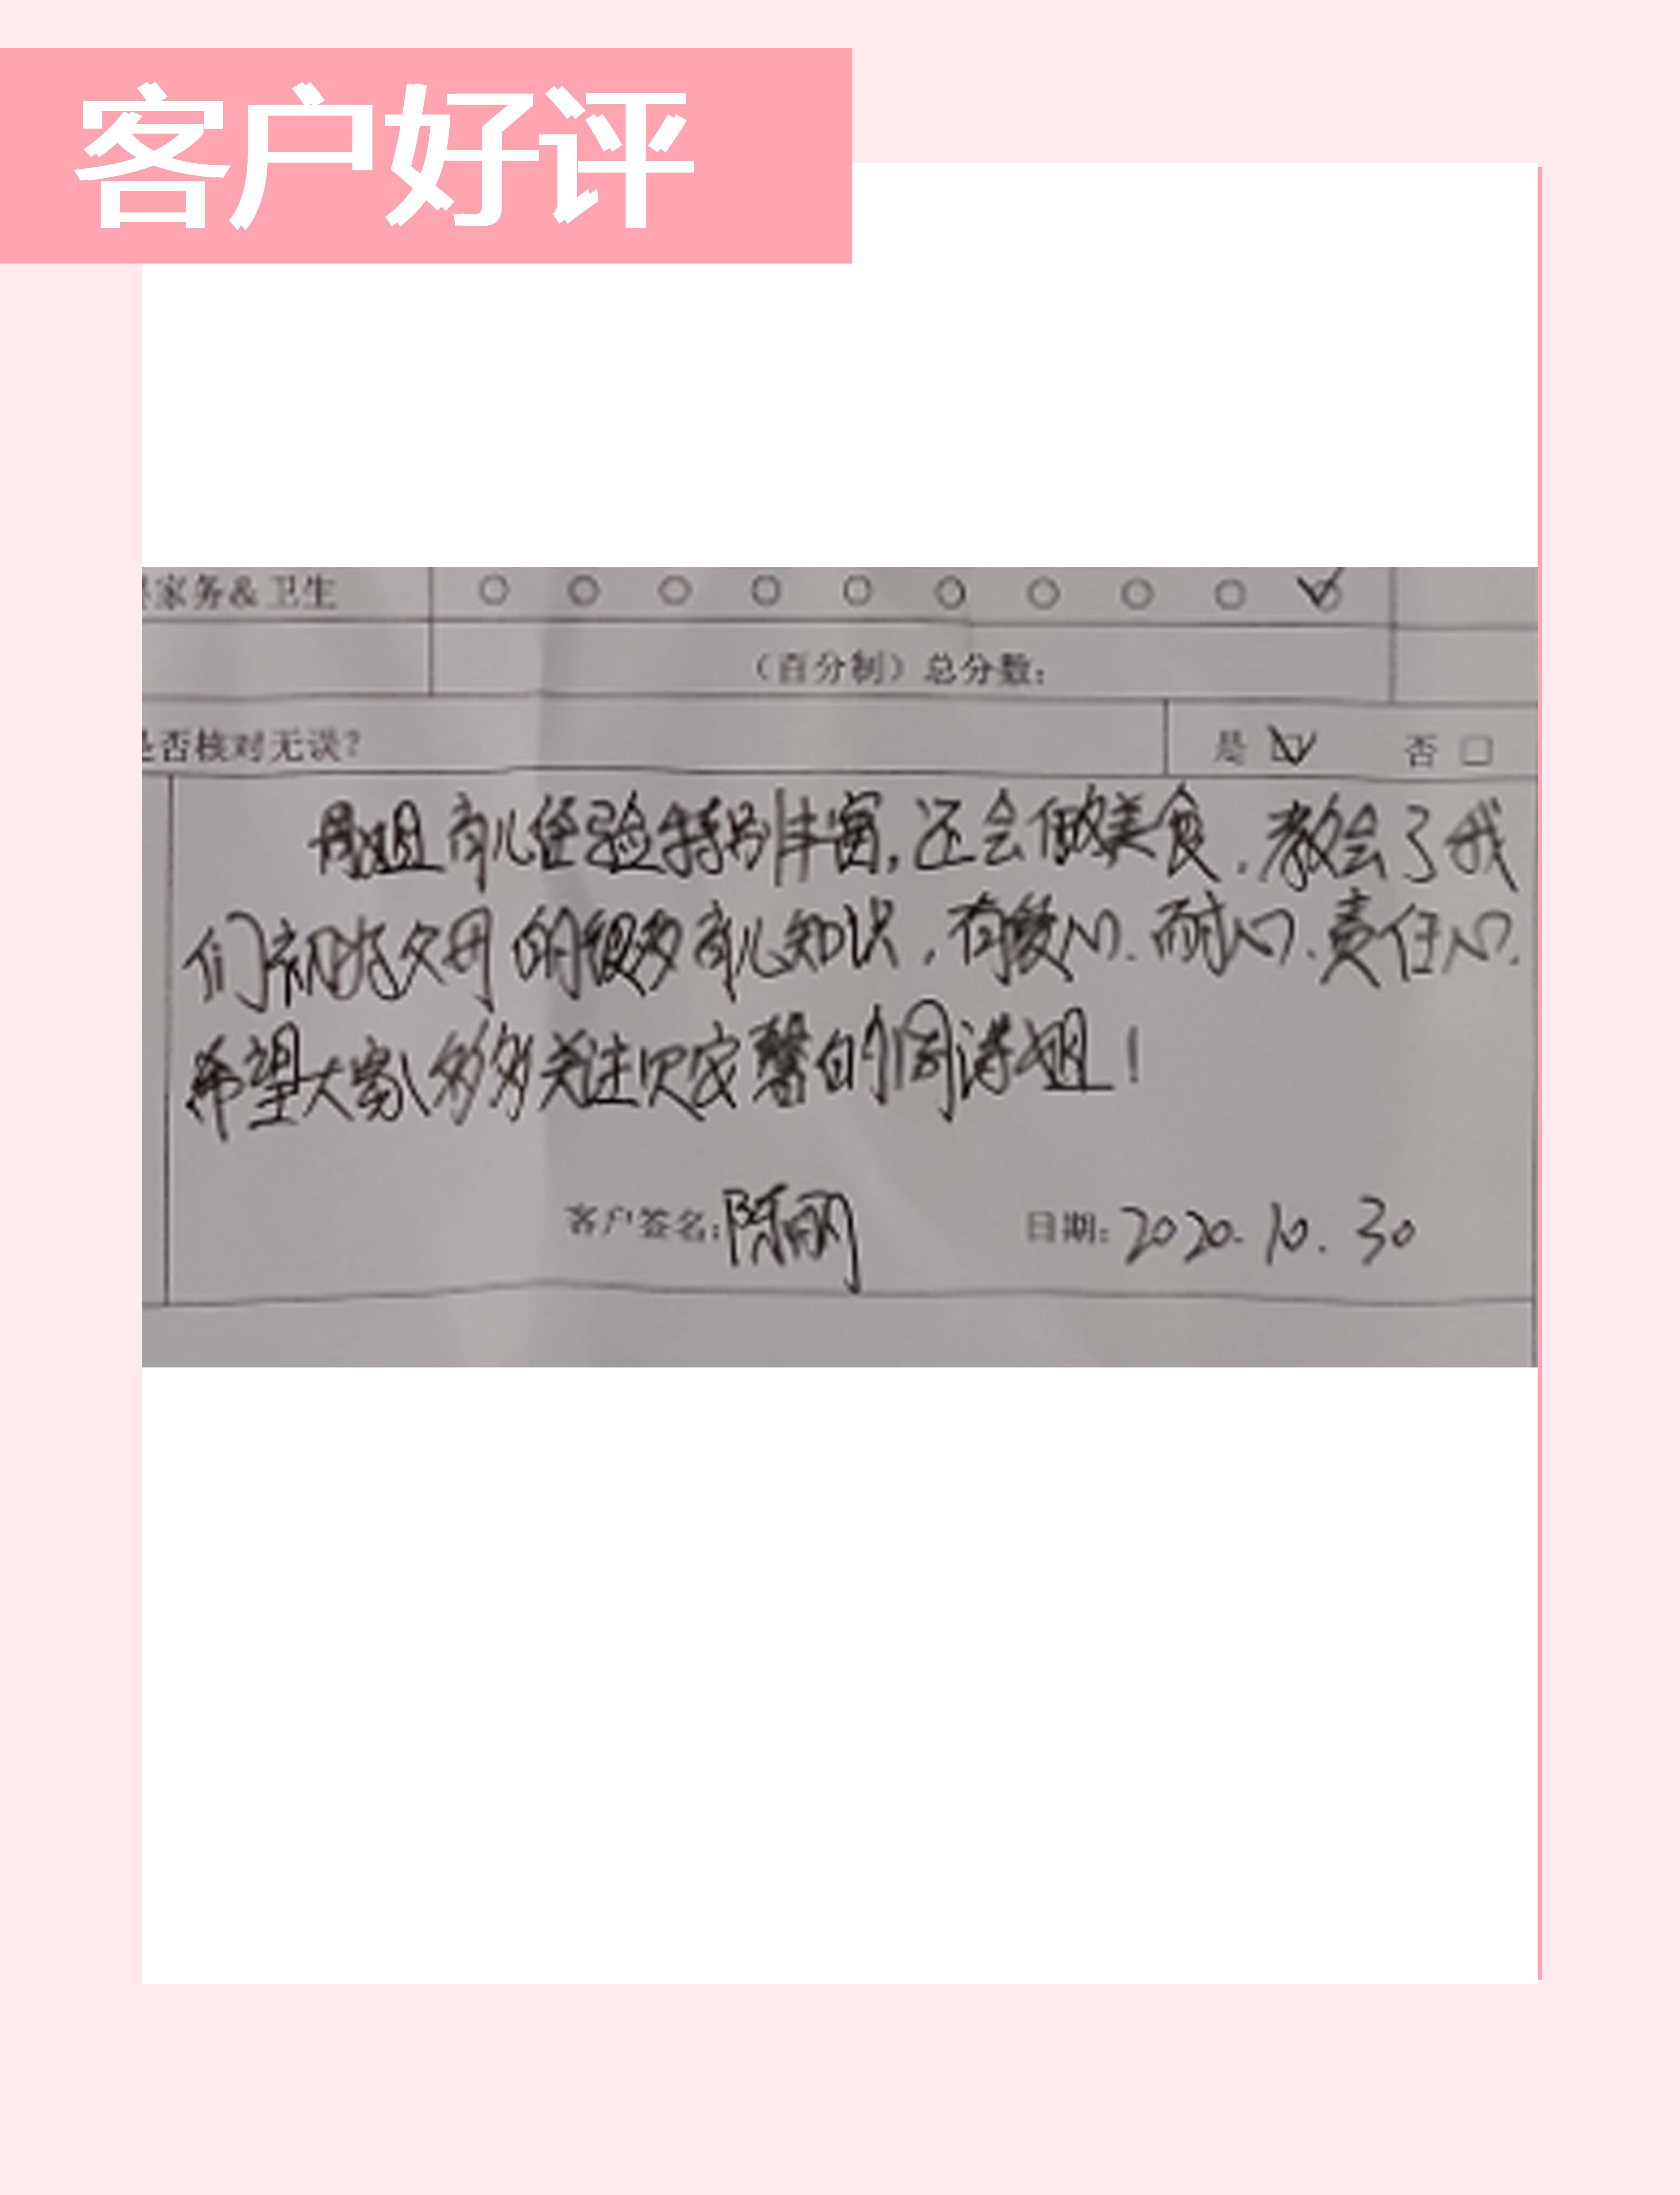 客户好评
家务&卫生
（百分制）总分数：
是否核对无误？ 是 否
月姐育儿经验特别丰富，还会做美食，教会了我
们初为父母的很多育儿知识，有爱心、耐心、责任心，
希望大家多多关注贝安馨的周涛姐！
客户签名： 日期：2020.10.30